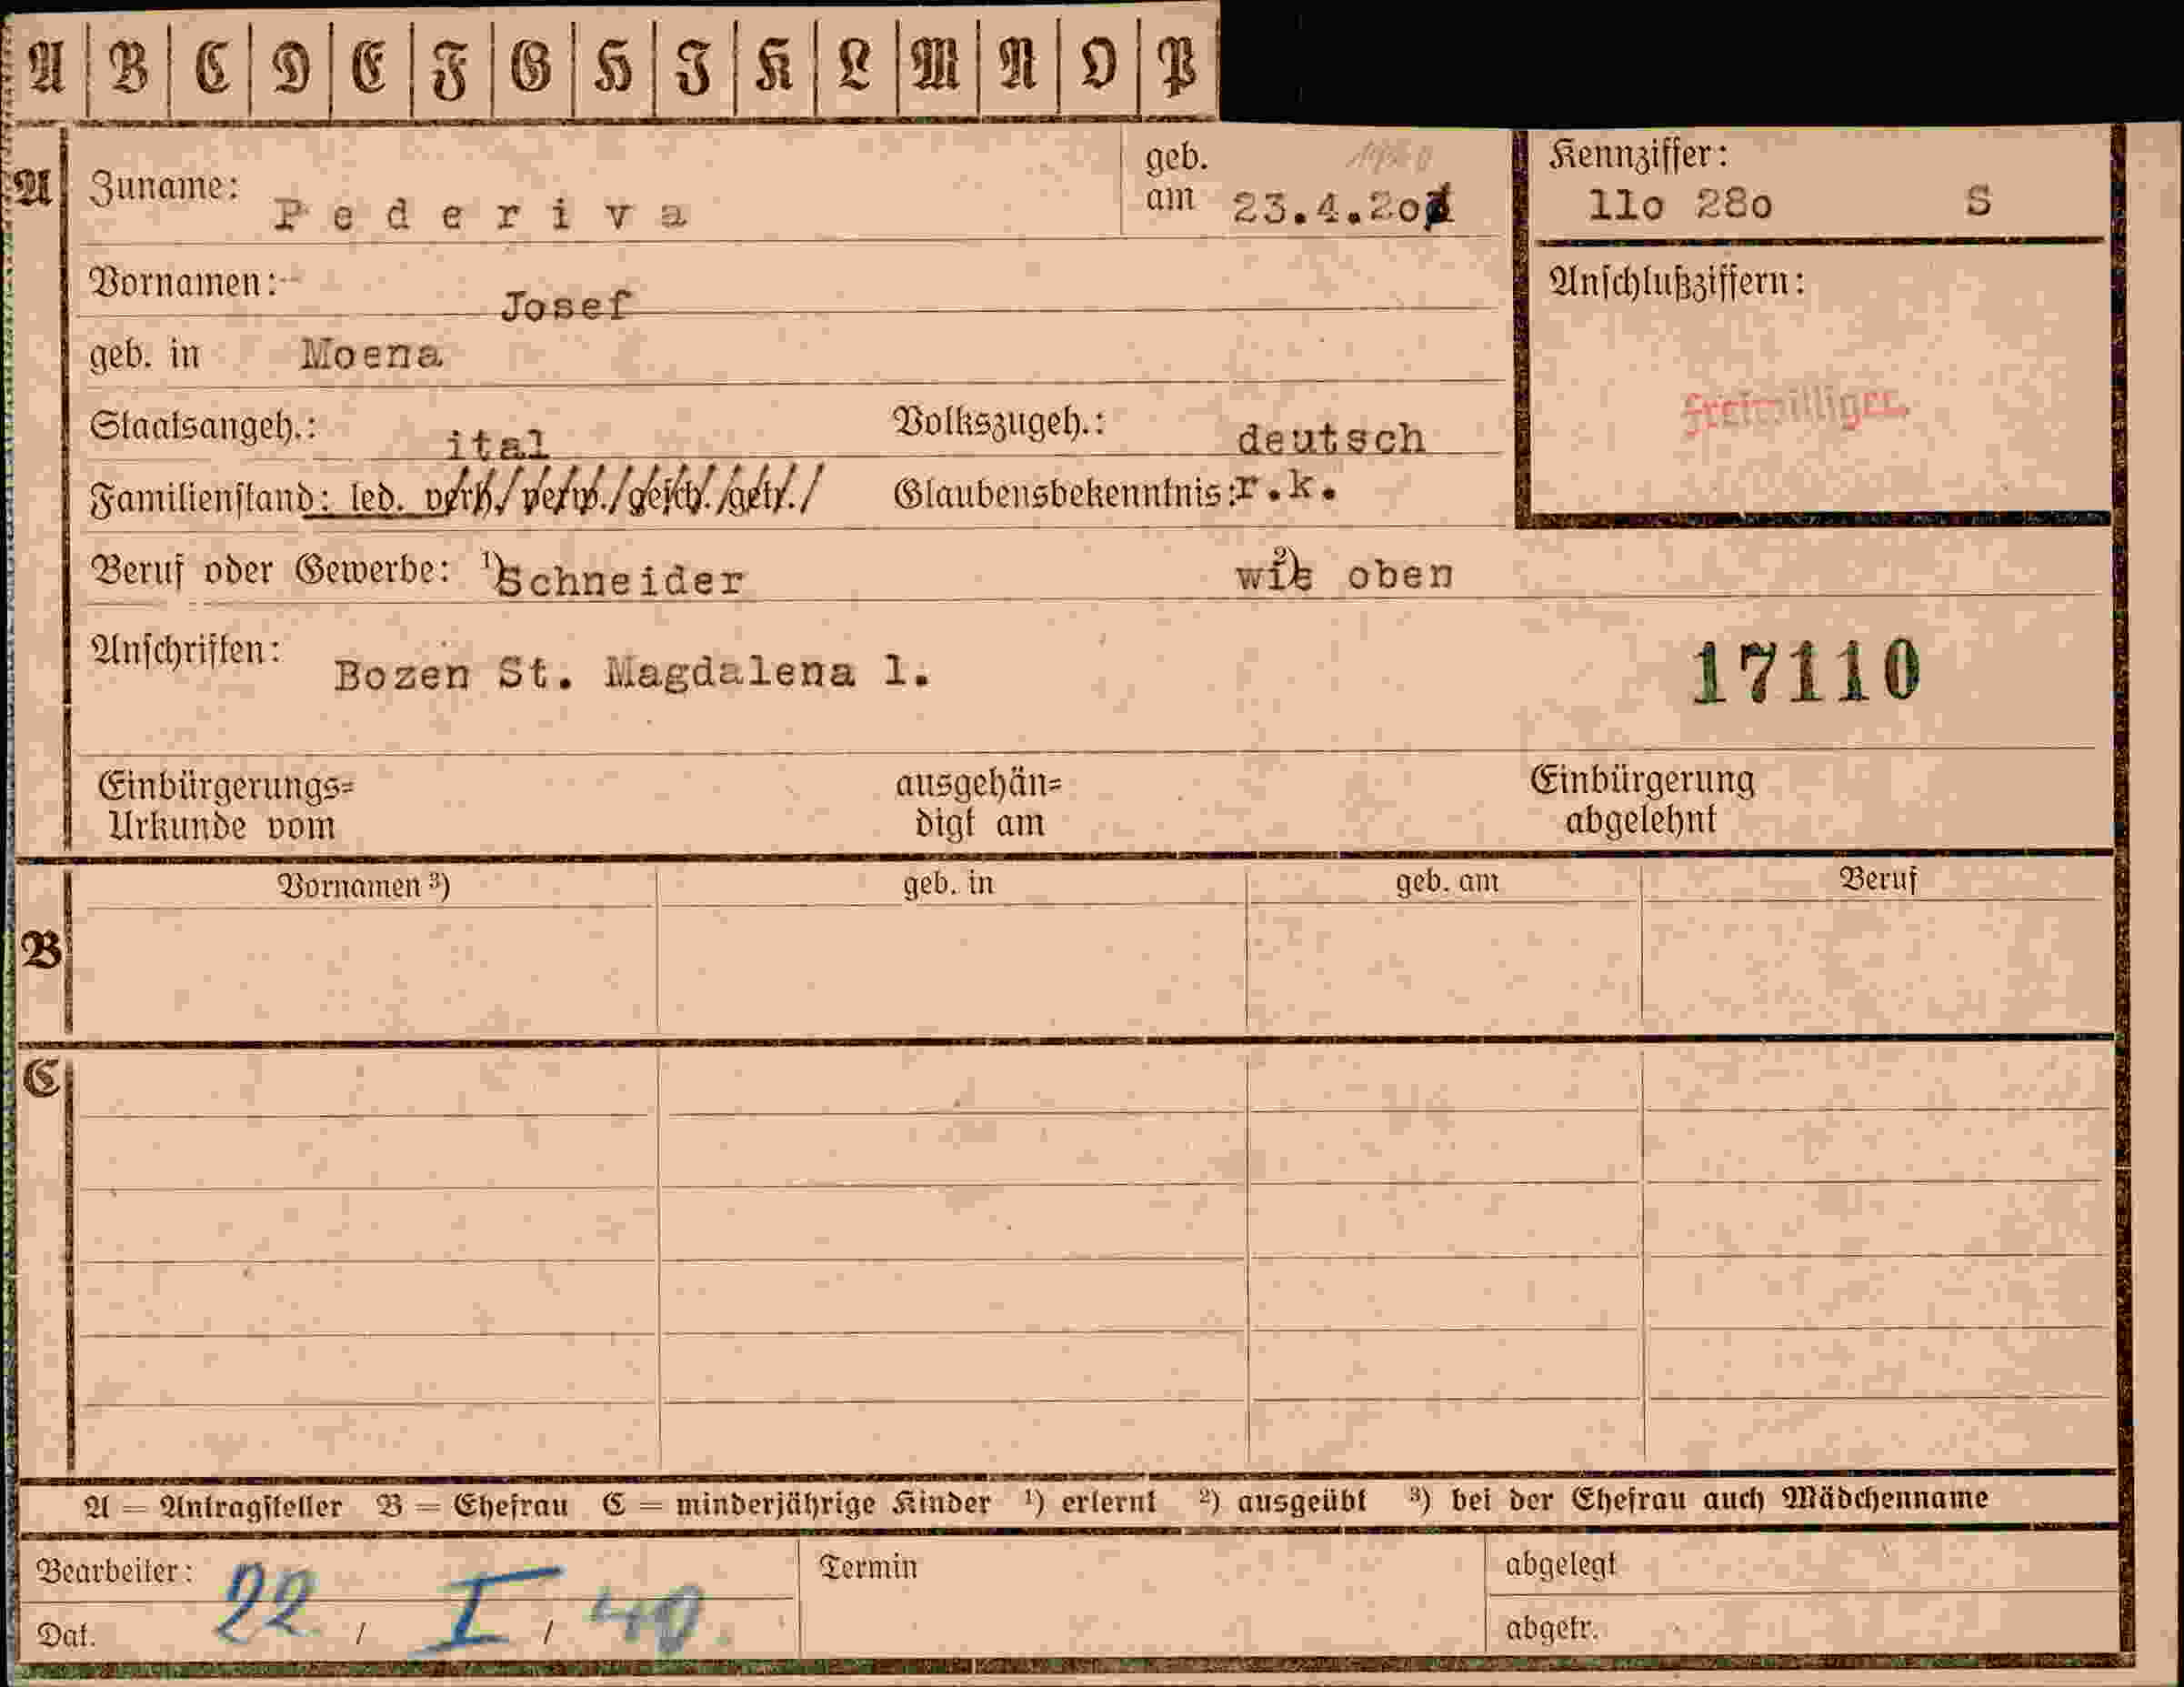 A B C D E F G H I K L M N O P
A
Zuname: Pederiva
geb. am 23.4.20
Kennziffer:
11o 28o S
Vornamen: Josef
Anschlußziffern:
geb. in Moena
freiwilliger
Staatsangeh.: ital Volkszugeh.: deutsch
Familienstand: led. verh./verw./gesch./getr./ Glaubensbekenntnis: r.k.
Beruf oder Gewerbe: ¹) Schneider ²) wie oben
Anschriften: Bozen St. Magdalena 1.
17110
Einbürgerungs=
Urkunde vom
ausgehän=
digt am
Einbürgerung
abgelehnt
B
Vornamen ³) geb. in geb. am Beruf
C
A = Antragsteller B = Ehefrau C = minderjährige Kinder ¹) erlernt ²) ausgeübt ³) bei der Ehefrau auch Mädchenname
Bearbeiter: Termin abgelegt
Dat. 22 / I / 40 abgetr.